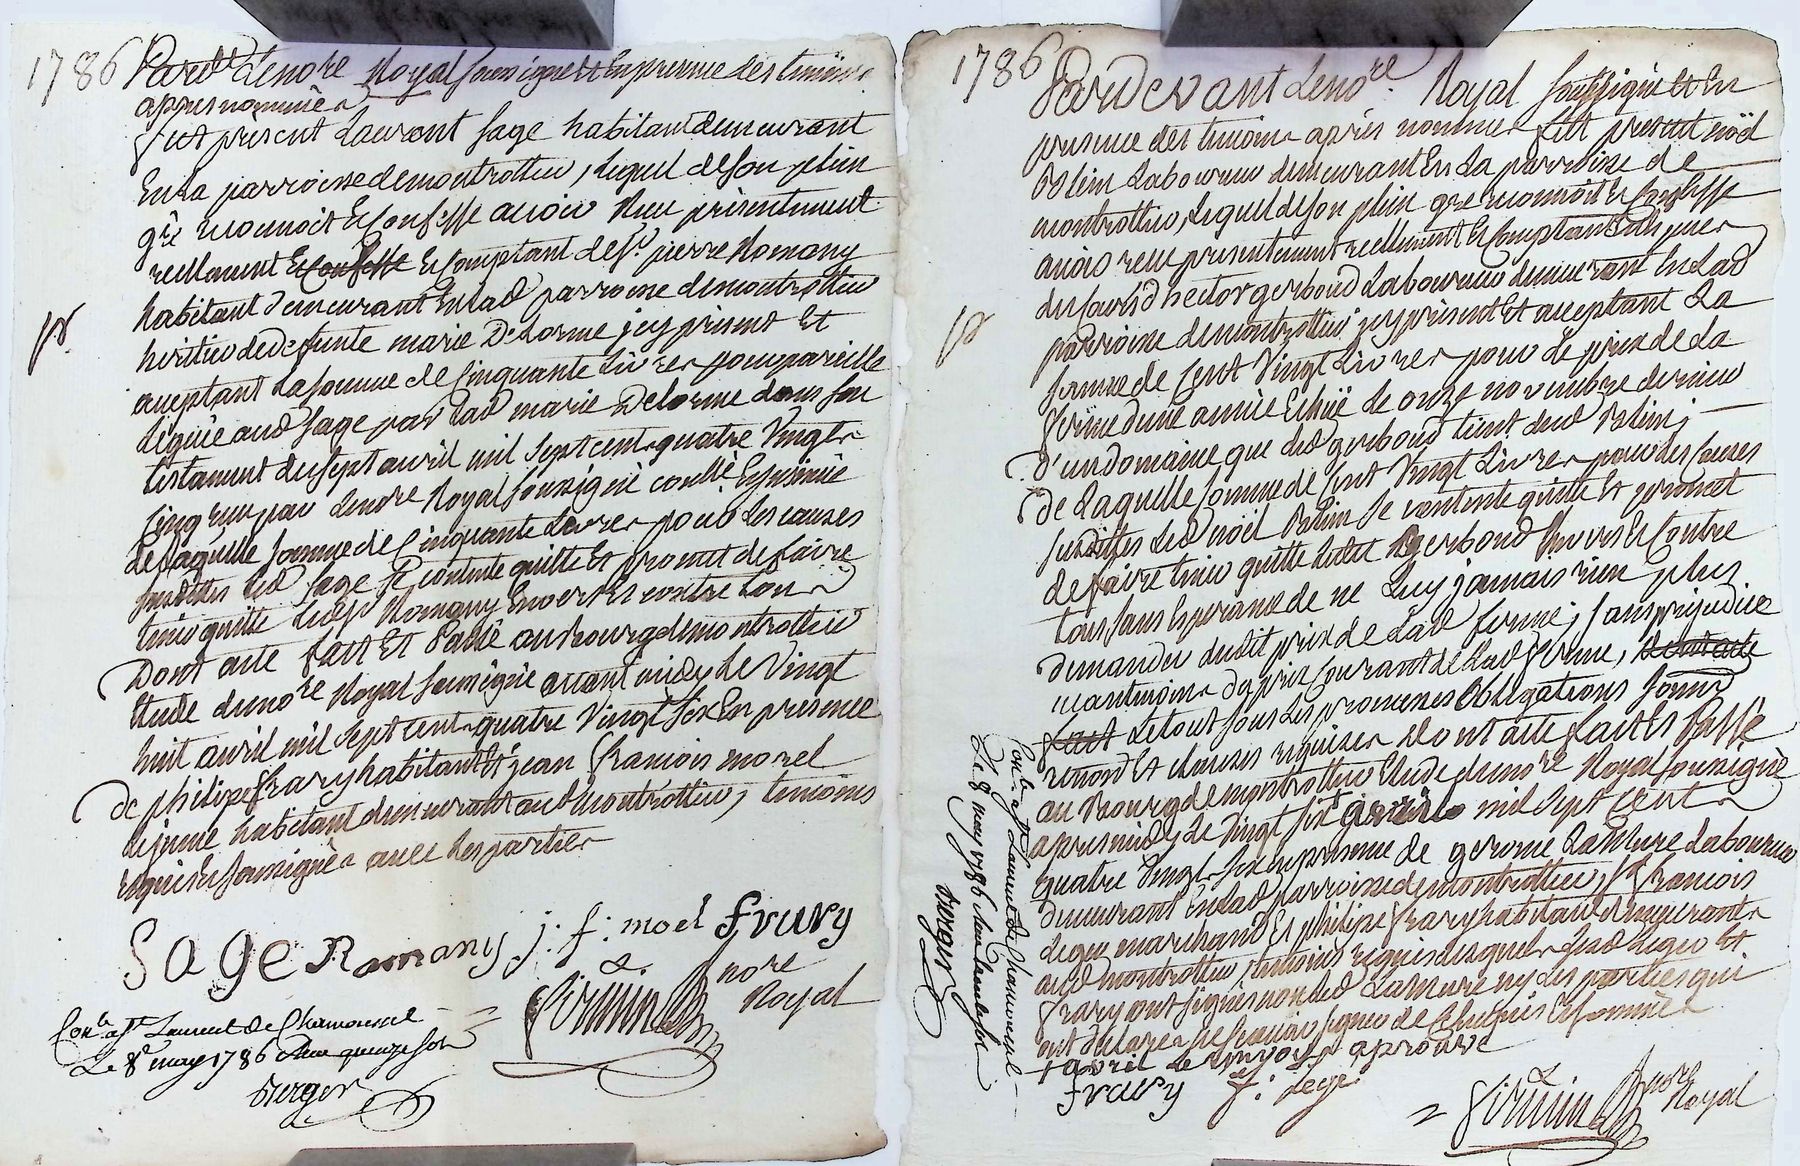 1786 Pardt Lenore Royal soussigné Et En presence des temoins
apres nommés
fut présent Laurent Sage habitant demeurant
En la parroisse de montrottier, Lequel de son plein
gré reconnoit Et Confesse avoir Reçu présentement
reellement Et Confesse Et Comptant de Sr. pierre Romany
habitant demeurant En lad parroisse de montrottier
heritier de deffunte marie Delorme jcy present Et
aceptant La somme de Cinquante Livres pour pareille
Léguée aud Sage par Lad marie Delorme dans son
testament du sept avril mil sept cent quatre Vingt
Cinq reçu par Lenore Royal soussigné
de Laquelle somme de Cinquante Livres pour Les causes
susdittes Led Sage Se contente quitte Et promet de faire
tenir quitte Led Sr Romany Envers Et contre tous
Dont acte fait Et Passé au bourg de montrottier
Etude du nore Royal soussigné avant midy Le Vingt
huit avril mil sept cent quatre Vingt Six En presence
de philipe frary habitant Et jean François morel
Le jeune habitant demeurant aud montrottier, temoins
requis Et soussignés avec Les parties
Sage Romany j: f: moel frury
nore
Royal
Conlé à St Laurent de Chamousset
Le 8e may 1786 Reçu quinze sols
Berger
1786 Pardevant Lenore. Royal soussigné Et En
presence des temoins après nommés fut present noël
Blein Laboureur demeurant En La parroisse de
montrottier, Lequel de son plein gré reconnoit Et Confesse
avoir reçu presentement reellement Et Comptant
hector gerboud Laboureur demeurant En Lad
parroisse de montrottier jcy présent Et aceptant La
somme de Cent Vingt Livres pour Le prix de La
ferme dune année Echüe Le onze novembre dernier
d'un domaine que Led gerboud tient dud Blein;
de Laquelle somme de Cent Vingt Livres pour Les Causes
susdittes Led noël Blein Se contente quitte Et promet
de faire tenir quitte Ledit gerboud Envers Et Contre
tous, sans Esperance de ne Luy jamais rien plus
demander dudit prix de Lad ferme; sans prejudice
neantmoins du prix Courant de Lad ferme, dont acte
fait Le tout sous Les promesses Obligations soumis
renond Et clauses requises Dont acte fait Et Passé
au Bourg de montrottier Etude du nore Royal soussigné
apres midy Le Vingt six avril mil sept Cent
quatre Vingt Six En presence de gerome LaMure Laboureur
demeurant En Lad parroisse de montrottier, Sr François
Leger marchand Et philipe frary habitant
aud montrottier, temoins requis desquels Lesd Leger Et
frary ont signé non Led LaMure ny Les parties qui
ont déclaré ne Scavoir signer de Ce Enquis Et sommés
avril Le renvoy aprouvé
frury f: Legé
nore
Royal
Conlé à St Laurent de Chamousset
Le 8 may 1786
Berger